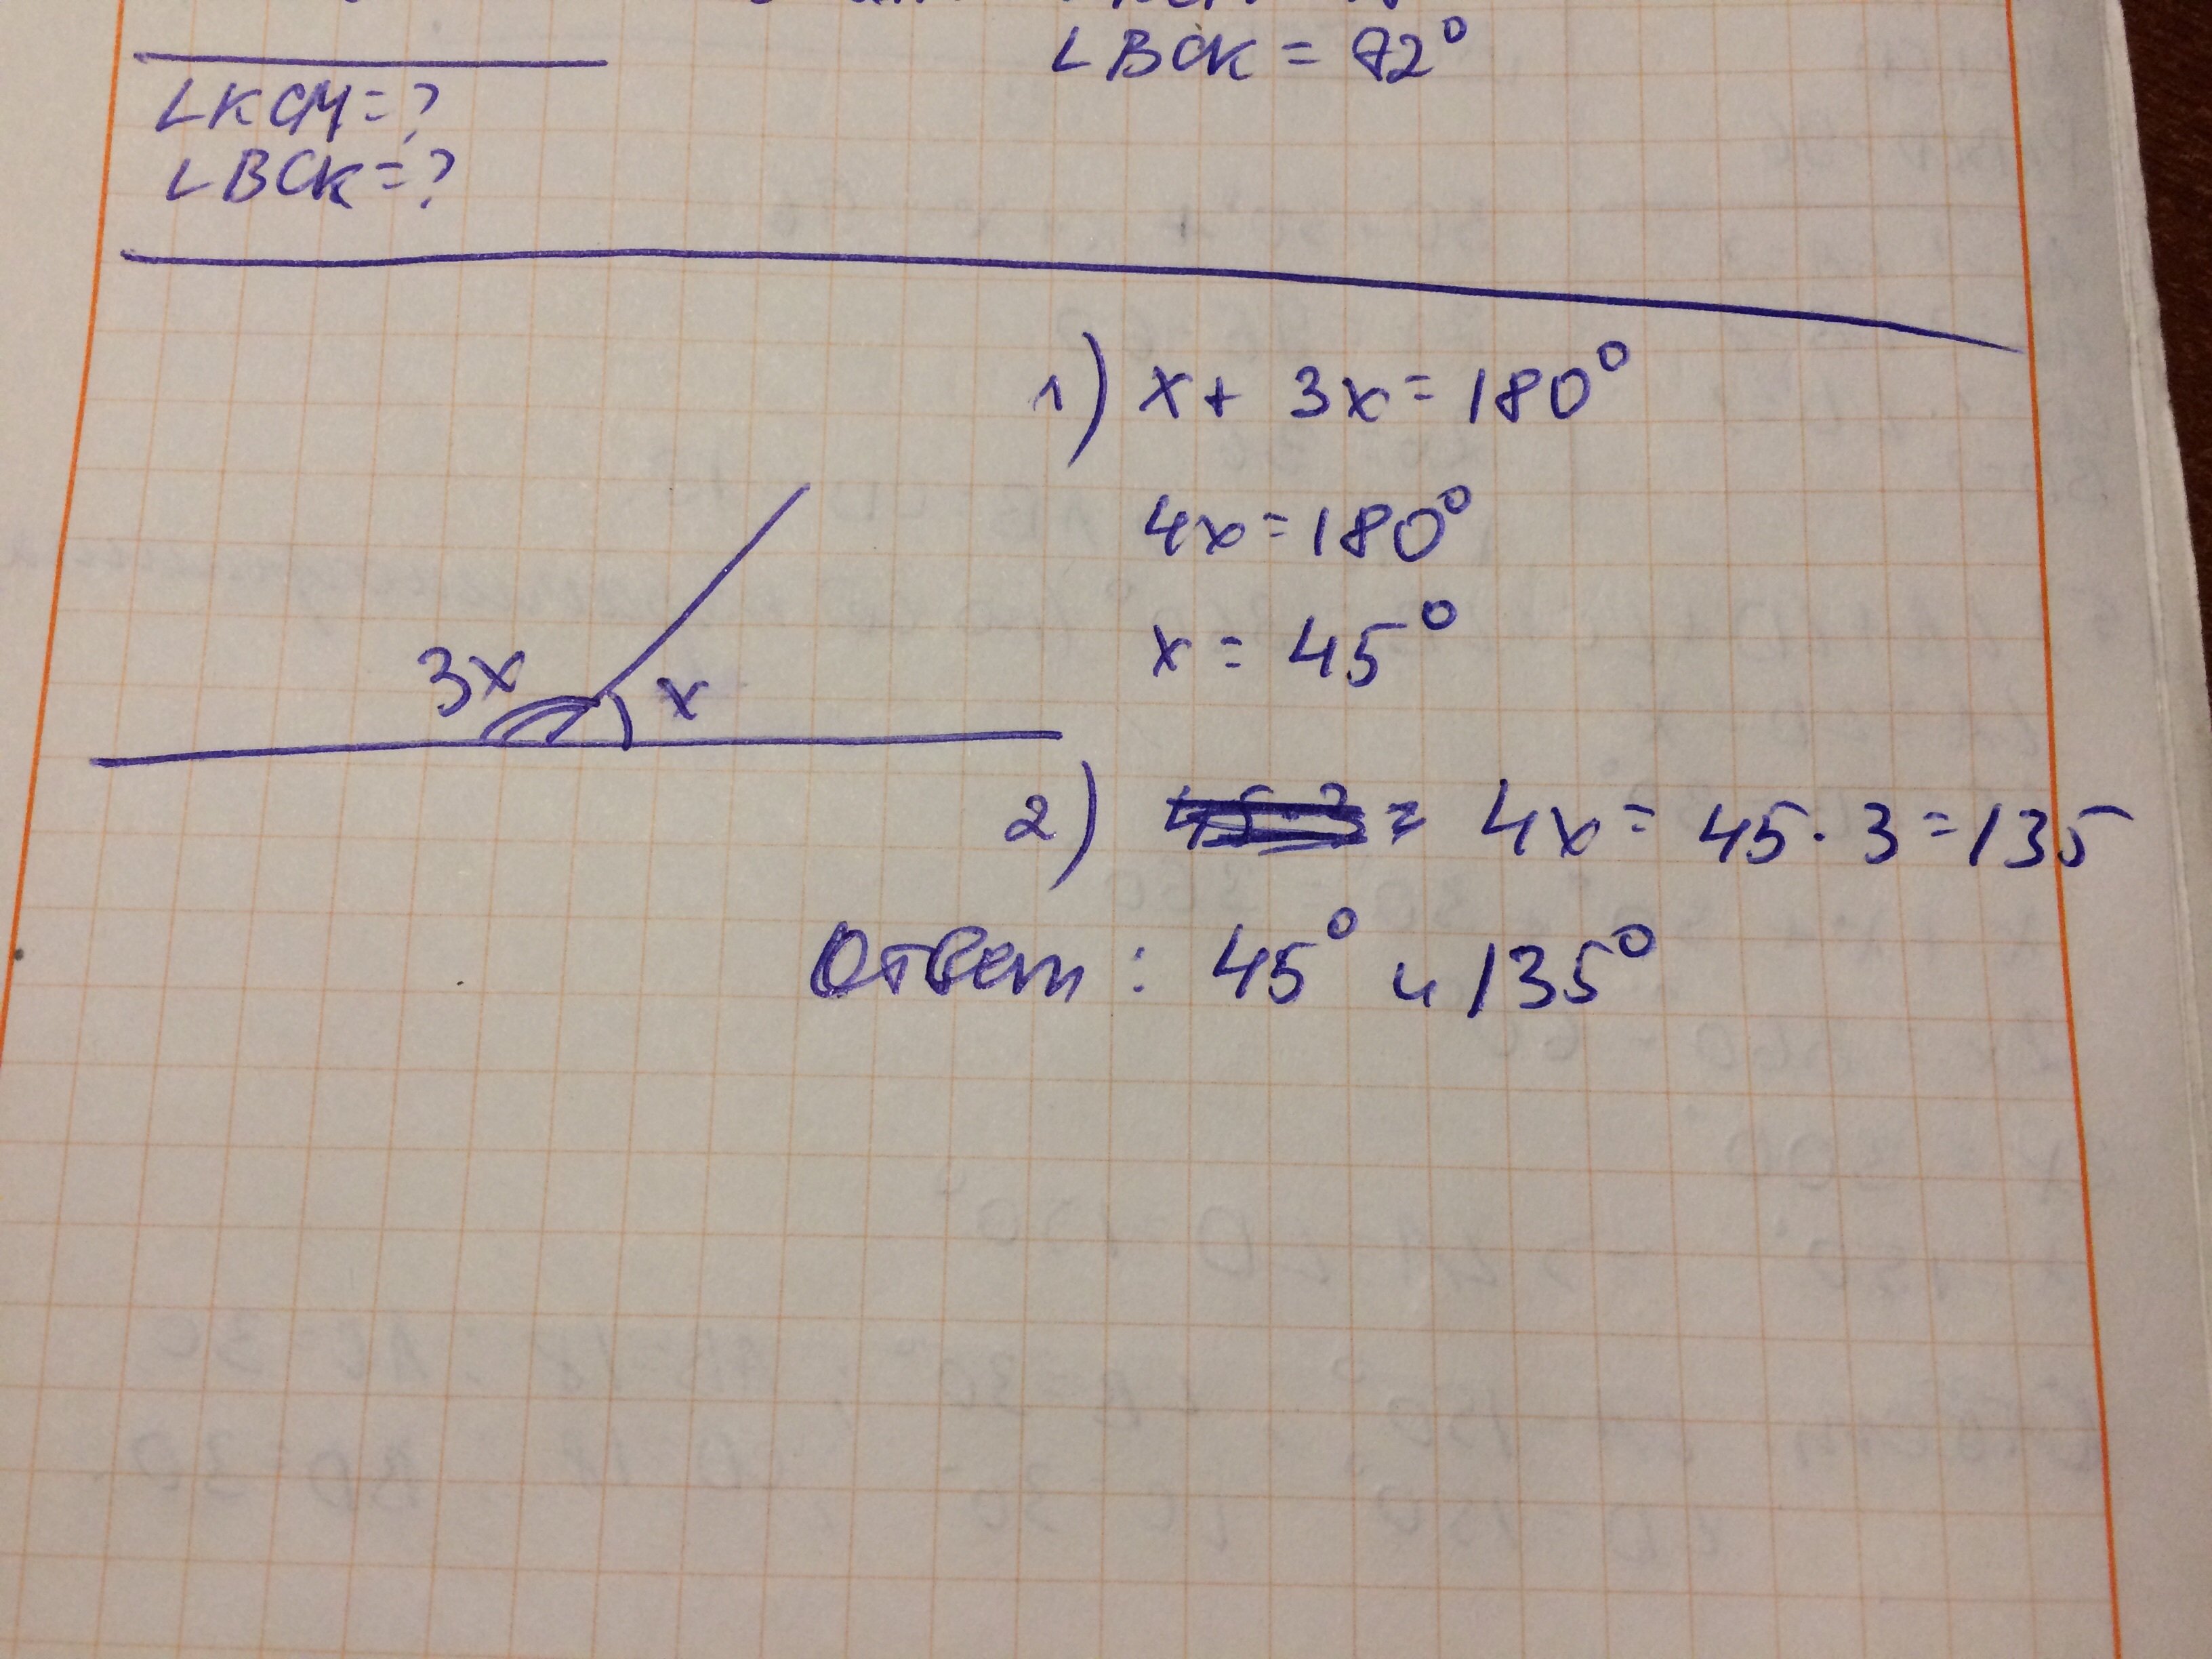 ∠BCK = 82°
∠KCM = ?
∠BCK = ?
1) x + 3x = 180°
4x = 180°
x = 45°
3x
x
2) = 4x = 45 · 3 = 135
Ответ : 45° и 135°